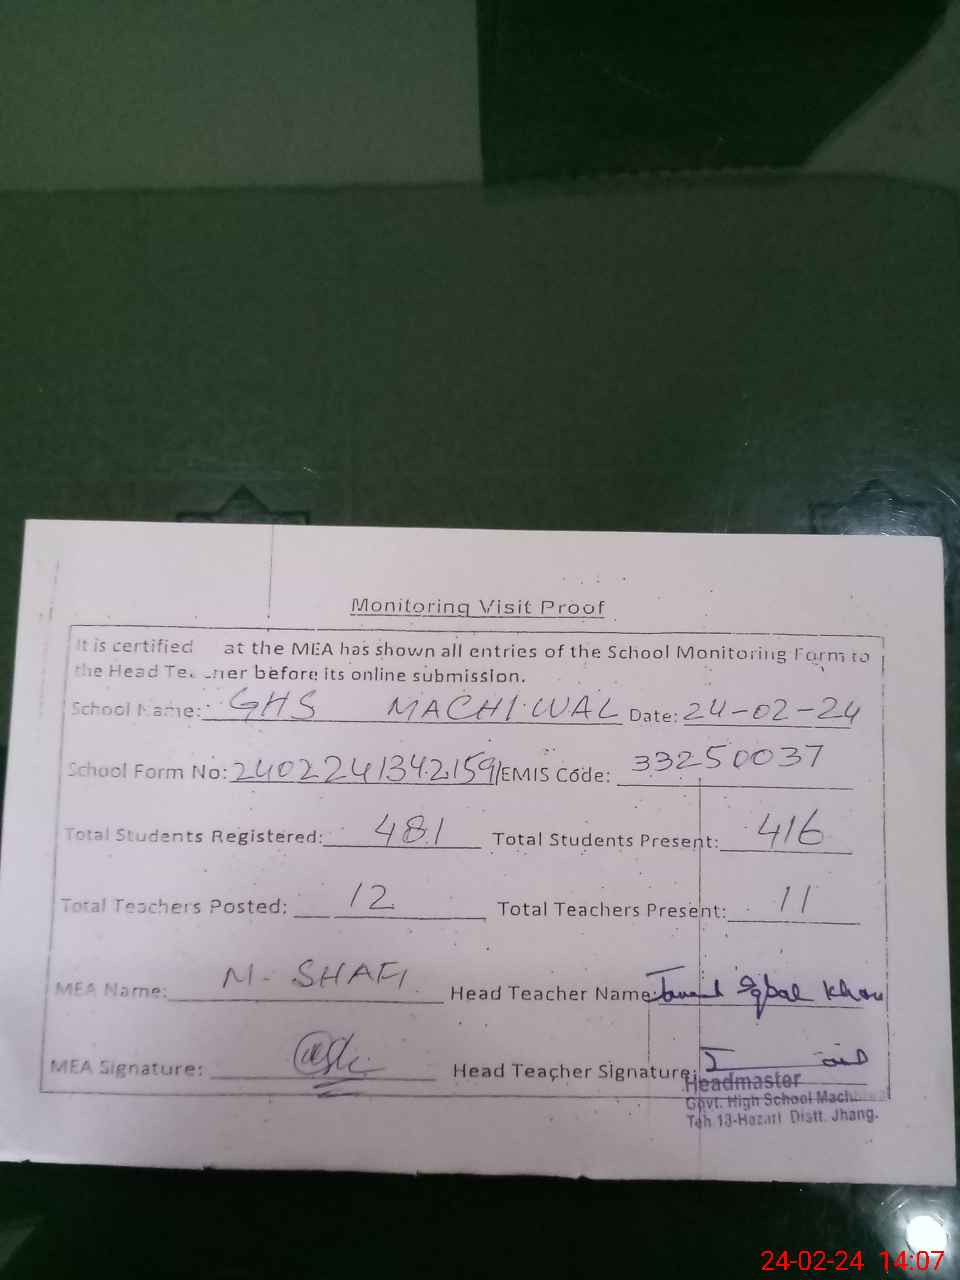 Monitoring Visit Proof
It is certified at the MEA has shown all entries of the School Monitoring Form to
the Head Teacher before its online submission.
School Name: GHS MACHIWAL Date: 24-02-24
School Form No: 24022241342159 EMIS Code: 33250037
Total Students Registered: 481 Total Students Present: 416
Total Teachers Posted: 12 Total Teachers Present: 11
MEA Name: M. SHAFI Head Teacher Name: Iqbal Khan
MEA Signature: Head Teacher Signature:
Headmaster
Govt. High School
Teh. 18-Hazari Distt. Jhang.
24-02-24 14:07